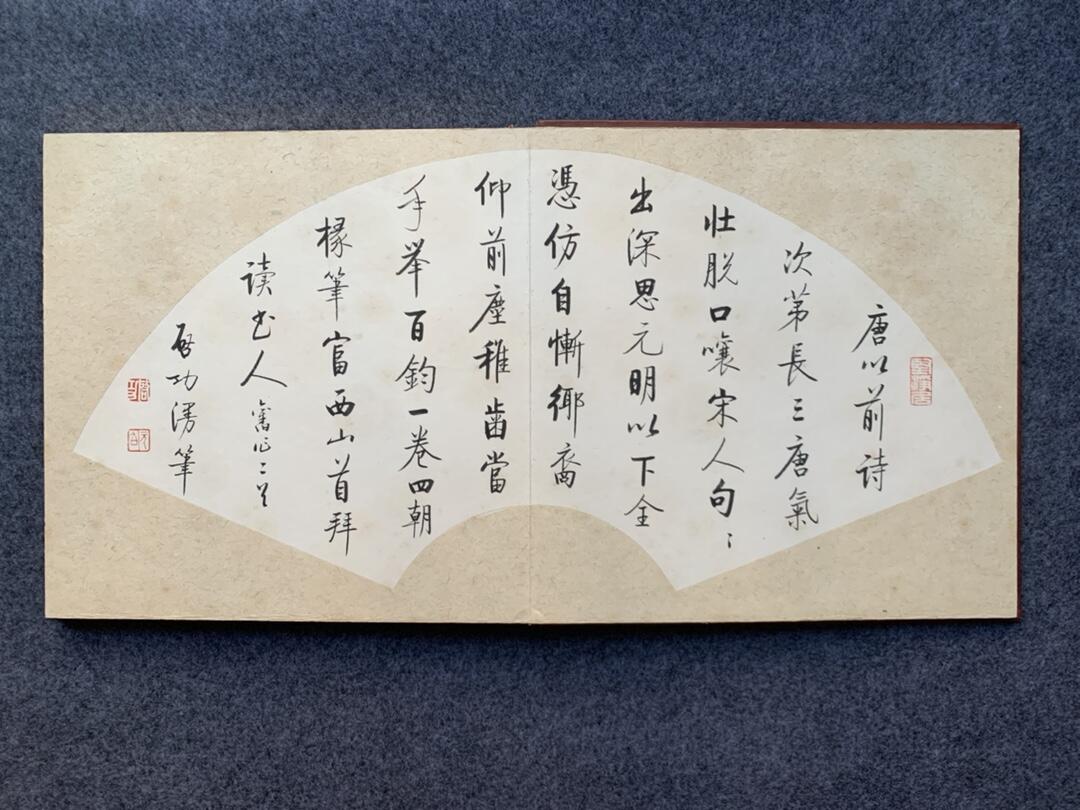 唐以前诗
次第長三唐氣
壮脱口嚷宋人句:
出深思元明以下全
憑仿自慚鄊裔
仰前塵稚齒當
手举百鈞一卷四朝
椽筆富西山首拜
读书人舊作二首
启功漫筆